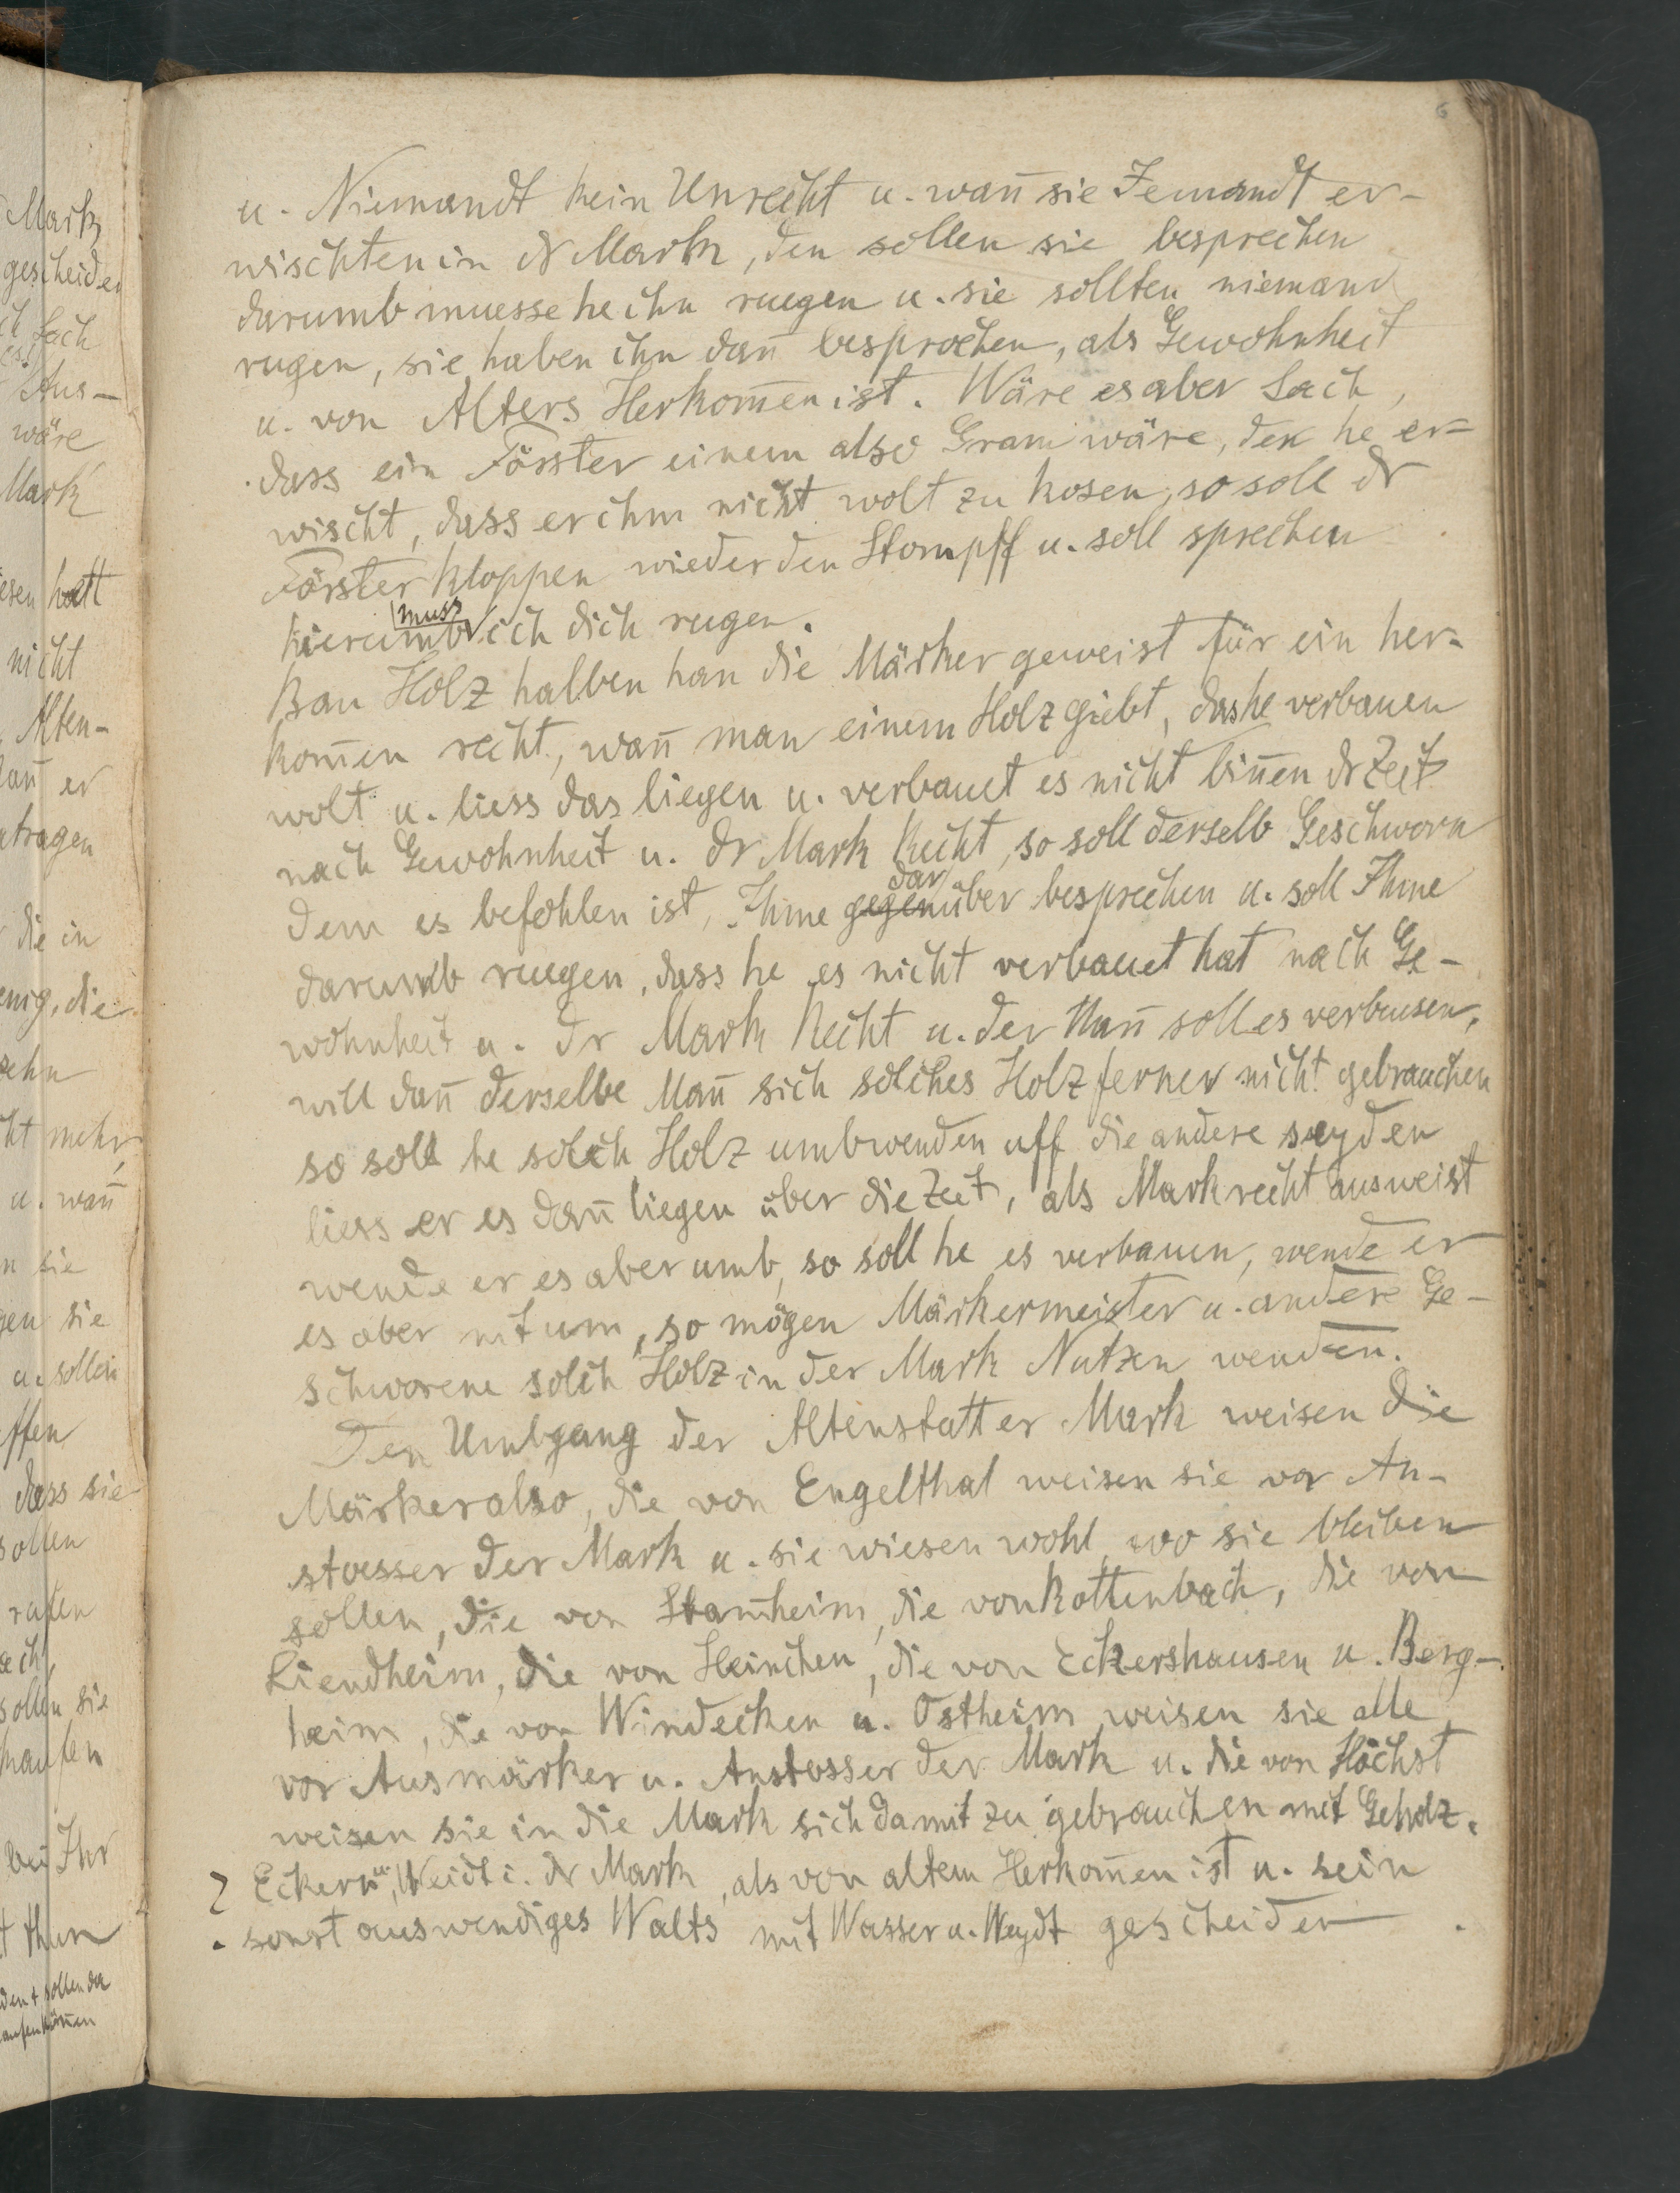 6
u. Niemandt kein Unrecht u. wan̄ sie Jemandt er-
wischten in dr Mark, den sollen sie besprechen
darumb muesse he ihn ruegen u. sie sollten niemand
rugen, sie haben ihn dan̄ besprochen, als Gewohnheit
u. von Alters Herkom̄en ist. Wäre es aber Sach,
dass ein Förster einem also Gram wäre, den he er-
wischt, dass er ihm nicht wolt zu kosen, so soll dr
Förster kloppen wieder den Stompff u. soll sprechen
hierumb muss ich dich rugen.
Bau Holz halben han die Märker geweist für ein her-
kom̄en recht, wan̄ man einem Holz giebt, das he verbauen
wolt u. liess das liegen u. verbauet es nicht bin̄en dr Zeit
nach Gewohnheit u. dr Mark Recht, so soll derselb Geschworn
dem es befohlen ist, Ihme gegen darüber besprechen u. soll Ihme
darumb ruegen, dass he es nicht verbauet hat nach Ge-
wohnheit u. dr Mark Recht u. der Man̄ soll es verbusen,
will dan̄ derselbe Man̄ sich solches Holz ferner nicht gebrauchen
so soll he solch Holz umbwenden uff die andere seyden
liess er es dan̄ liegen über die Zeit, als Markrecht ausweist
wende er es aber umb, so soll he es verbauen, wende er
es aber nit um, so mögen Märkermeister u. andere Ge-
schworene solch Holz in der Mark Nutzen wenden.
Den Umbgang der Altenstatter Mark weisen die
Märker also, die von Engelthal weisen sie vor An-
stoesser der Mark u. sie wiesen wohl, wo sie bleiben
sollen, die von Stam̄heim, die von Rottenbach, die von
Liendheim, die von Heinchen, die von Eckershausen u. Berg-
heim, die von Windecken u. Ostheim weisen sie alle
vor Ausmärker u. Anstosser der Mark u. die von Höchst
weisen sie in die Mark sich damit zu gebrauchen mit Geholz,
Eckern u. Weidt i. dr Mark, als von altem Herkom̄en ist u. sein
sonst auswendiges Walts mit Wasser u. Weydt gescheiden.